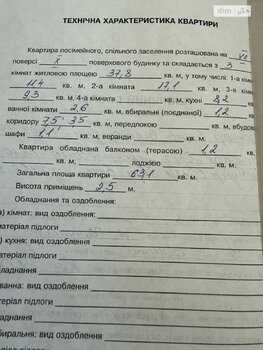 dim
ТЕХНІЧНА ХАРАКТЕРИСТИКА КВАРТИРИ
Квартира посімейного, спільного заселення розташована на VII
поверсі X поверхового будинку та складається з 3
кімнат житловою площею 37,8 кв. м, у тому числі: 1-а кімн
11,4 кв. м, 2-а кімната 17,1 кв. м, 3-я кімн
9,3 кв. м, 4-а кімната кв. м, кухні 8,2 кв
ванної кімнати 2,6 кв. м, вбиральні (поєднаної) 1,2 кв
коридору 7,5 3,5 кв. м, передпокою кв. м, вбудов
шафи 1,1 кв. м, веранди кв. м.
Квартира обладнана балконом (терасою) 1,2 кв. м,
кв. м, лоджією кв. м.
Загальна площа квартири 63,1 кв. м.
Висота приміщень 2,5 м.
Обладнання та оздоблення:
а) кімнат: вид оздоблення:
матеріал підлоги
) кухня: вид оздоблення:
атеріал підлоги
ладнання
ванна: вид оздоблення:
атеріал підлоги
аднання
биральня: вид оздоблення: